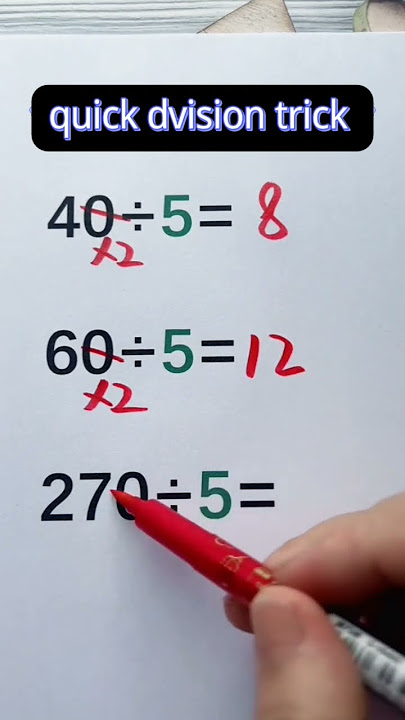 quick dvision trick
40÷5= 8
×2
60÷5=12
×2
270÷5=